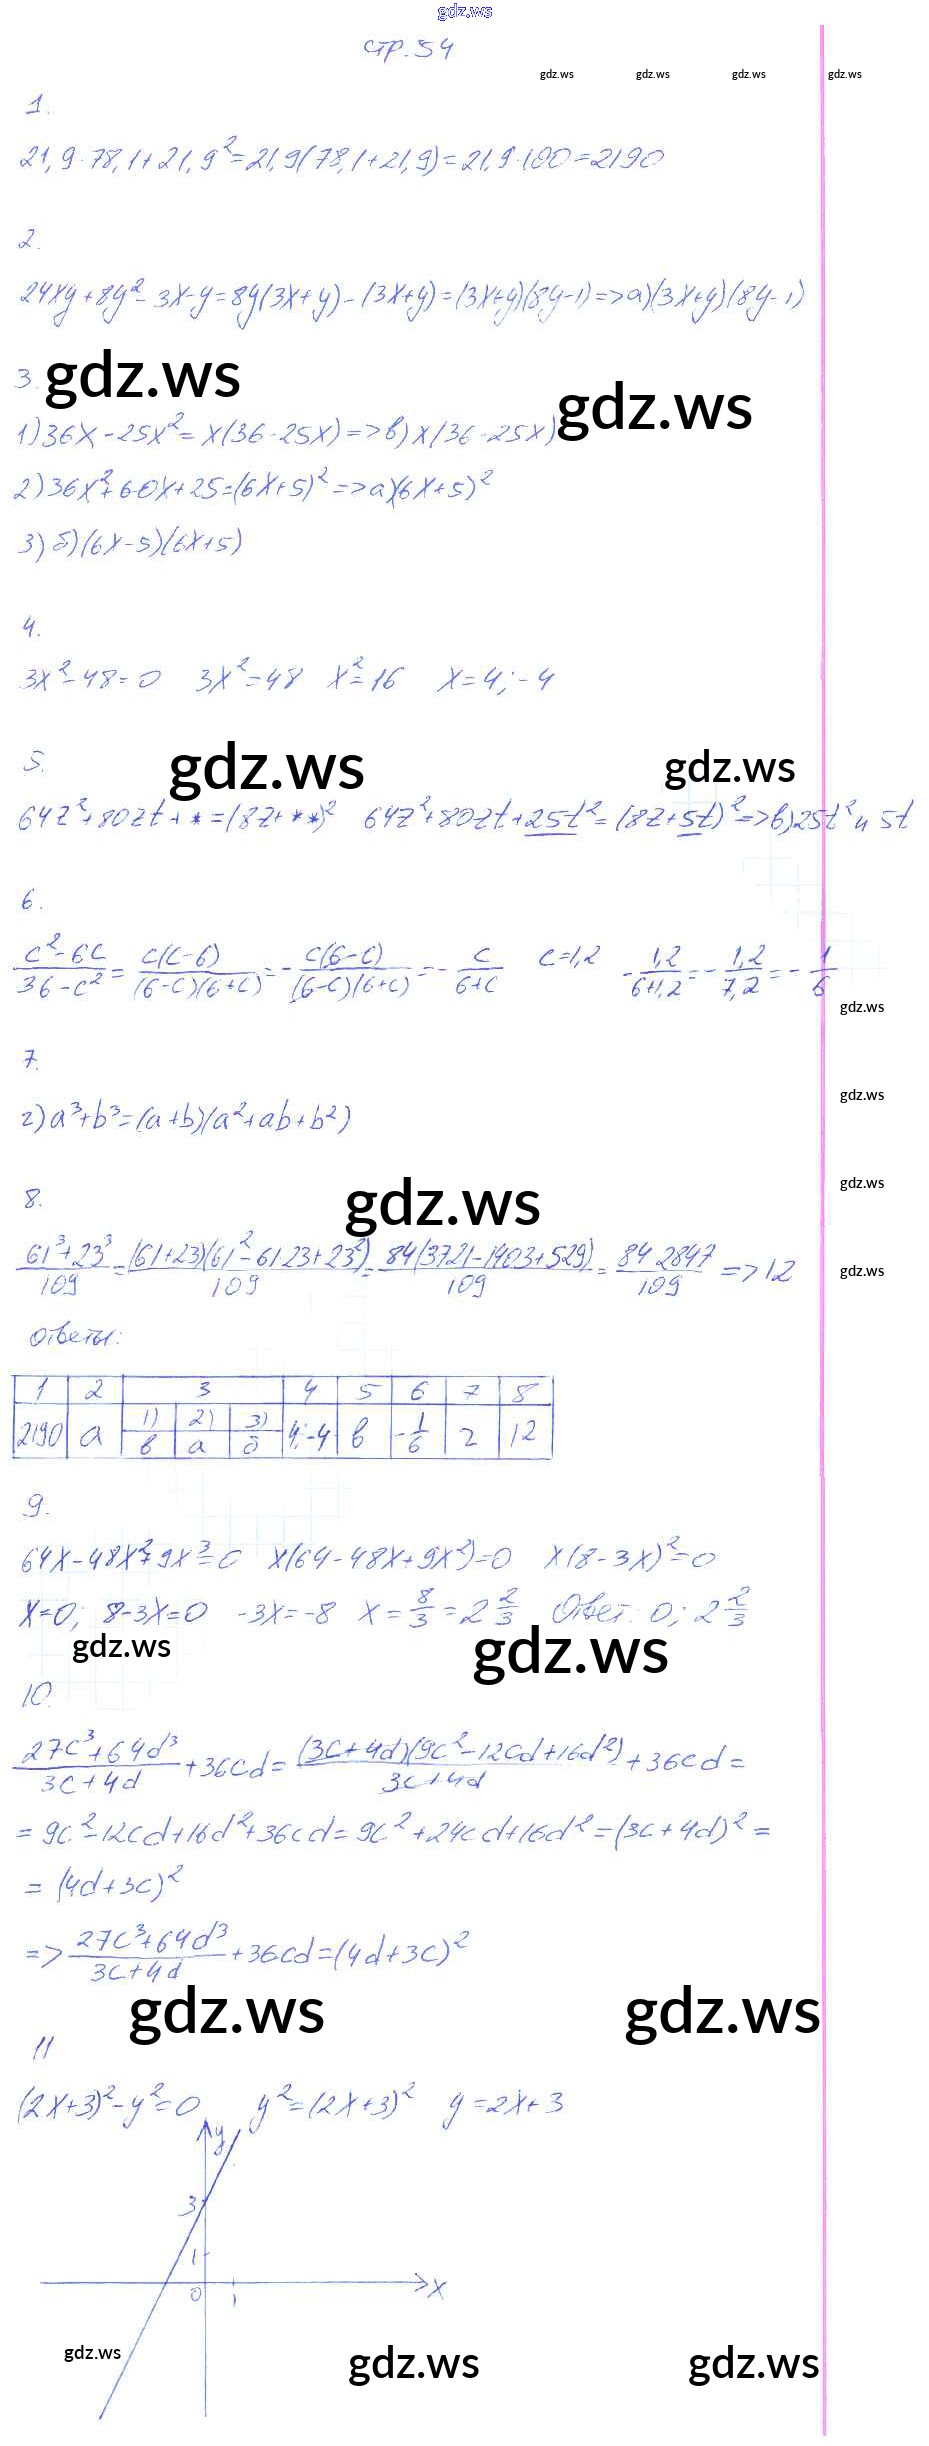 gdz.ws
стр. 54
gdz.ws gdz.ws gdz.ws gdz.ws
1.
21,9·78,1+21,9²=21,9(78,1+21,9)=21,9·100=2190
2.
24xy+8y²-3x-y=8y(3x+y)-(3x+y)=(3x+y)(8y-1)=>а)(3x+y)(8y-1)
3.
gdz.ws
gdz.ws
1)36x-25x²=x(36-25x)=>в)x(36-25x)
2)36x²+60x+25=(6x+5)²=>а)(6x+5)²
3)б)(6x-5)(6x+5)
4.
3x²-48=0 3x²=48 x²=16 x=4;-4
5.
gdz.ws gdz.ws
64z²+80zt+*=(8z+**)² 64z²+80zt+25t²=(8z+5t)²=>в)25t² и 5t
6.
(c²-6c)/(36-c²)=c(c-6)/((6-c)(6+c))=-c(6-c)/((6-c)(6+c))=-c/(6+c) c=1,2 -1,2/(6+1,2)=-1,2/7,2=-1/6
gdz.ws
7.
gdz.ws
г)a³+b³=(a+b)(a²+ab+b²)
gdz.ws
8.
gdz.ws
(61³+23³)/109=(61+23)(61²-61·23+23²)/109=84(3721-1403+529)/109=84·2847/109=>12
gdz.ws
ответы:
1 2 3 4 5 6 7 8
1) 2) 3)
2190 а в а б 4;-4 в -1/6 г 12
9.
64x-48x²+9x³=0 x(64-48x+9x²)=0 x(8-3x)²=0
x=0; 8-3x=0 -3x=-8 x=8/3=2 2/3 Ответ: 0; 2 2/3
gdz.ws gdz.ws
10.
(27c³+64d³)/(3c+4d)+36cd=(3c+4d)(9c²-12cd+16d²)/(3c+4d)+36cd=
=9c²-12cd+16d²+36cd=9c²+24cd+16d²=(3c+4d)²=
=(4d+3c)²
=>(27c³+64d³)/(3c+4d)+36cd=(4d+3c)²
gdz.ws gdz.ws
11
(2x+3)²-y²=0 y²=(2x+3)² y=2x+3
y
3
1
0 1 x
gdz.ws gdz.ws gdz.ws